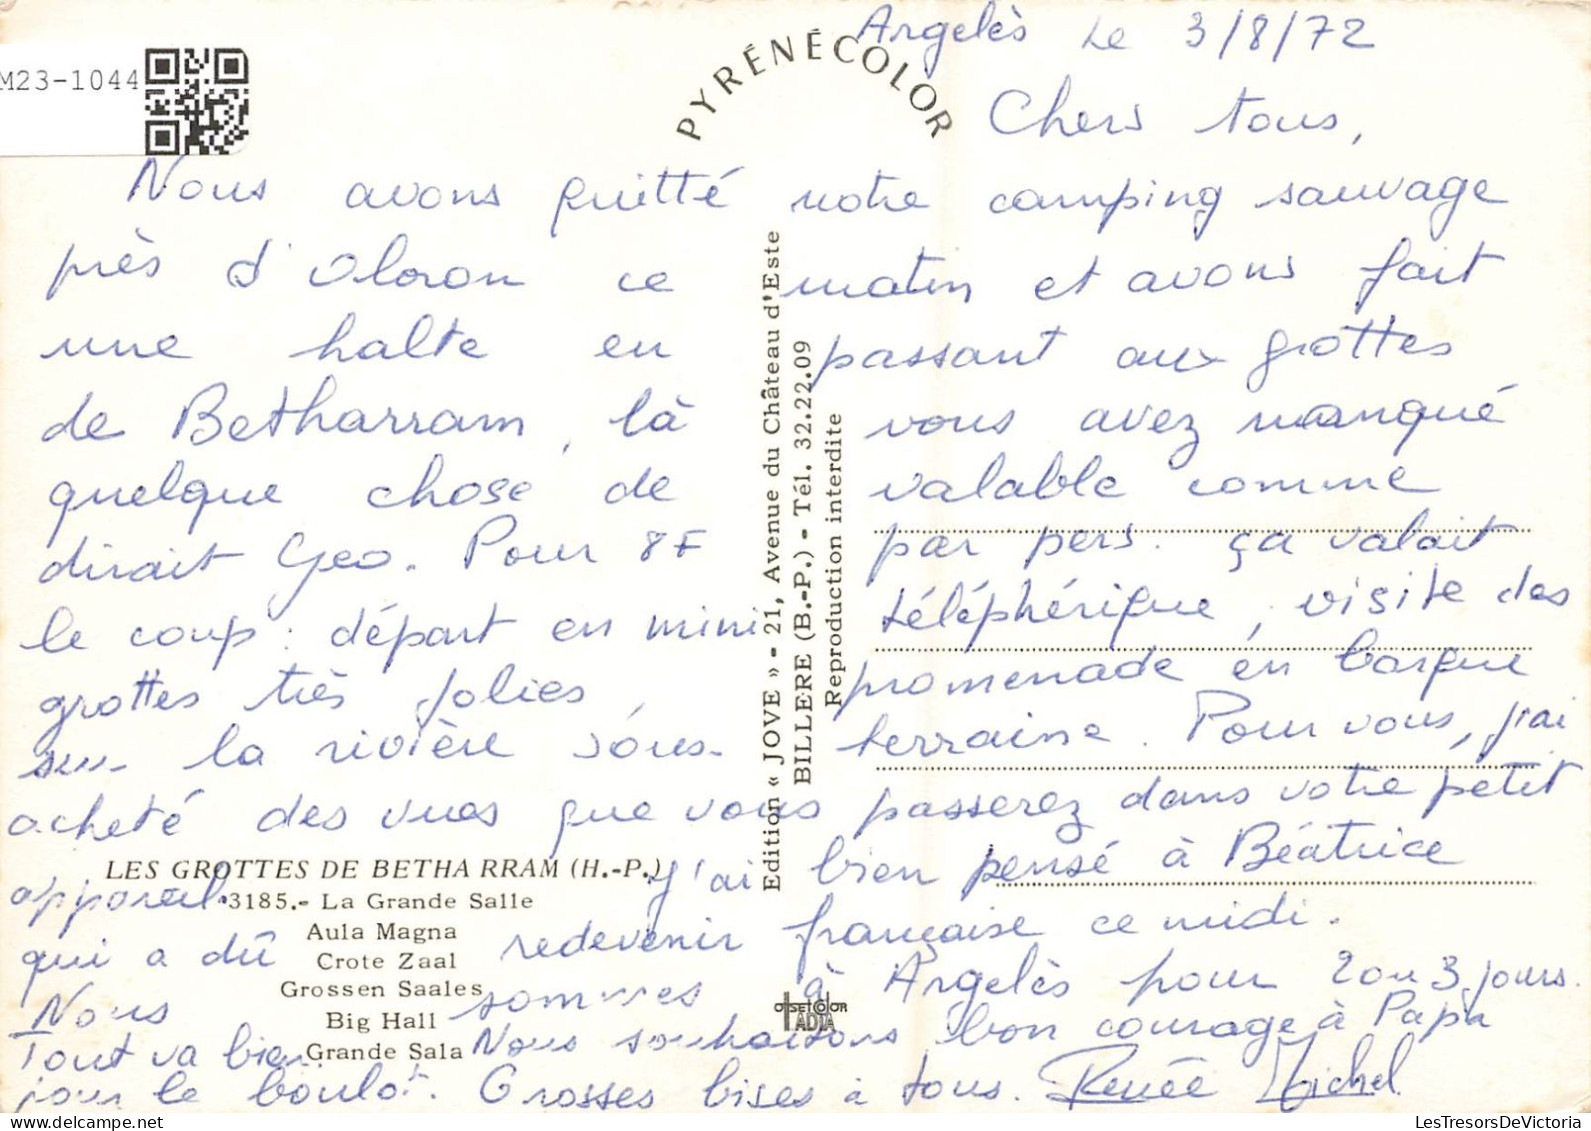 Argelès le 3/8/72
M23-1044
PYRÉNÉCOLOR
Chers tous,
Nous avons quitté notre camping sauvage
près d'Oloron ce matin et avons fait
une halte en passant aux grottes
de Betharram, là vous avez manqué
quelque chose de valable comme
dirait Geo. Pour 8F par pers. ça valait
le coup : départ en mini téléphérique, visite des
grottes très jolies, promenade en barque
sur la rivière sous-terraine. Pour vous, j'ai
acheté des vues que vous passerez dans votre petit
appareil. J'ai bien pensé à Béatrice
qui a dû redevenir française ce midi.
Nous sommes à Argelès pour 2 ou 3 jours.
Tout va bien. Nous souhaitons bon courage à Papa
pour le boulot. Grosses bises à tous. Renée Michel
Edition « JOVE » - 21, Avenue du Château d'Este
BILLERE (B.-P.) - Tél. 32.22.09
Reproduction interdite
LES GROTTES DE BETHARRAM (H.-P.)
3185.- La Grande Salle
Aula Magna
Crote Zaal
Grossen Saales
Big Hall
Grande Sala
LesTresorsDeVictoria.com